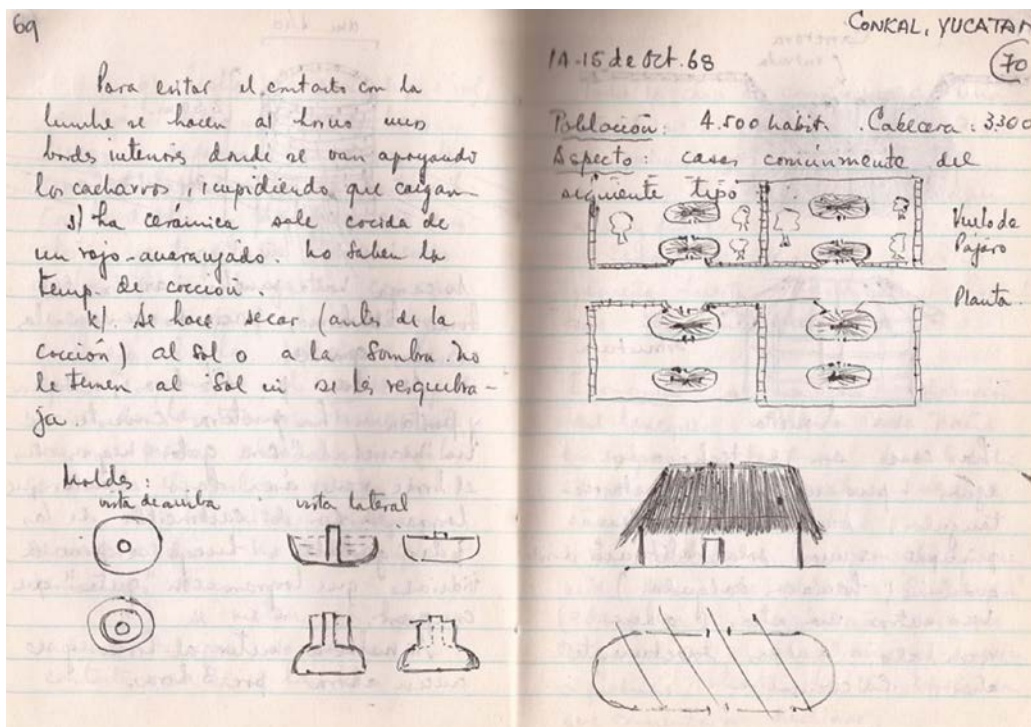 69
Para evitar el contacto con la
lumbre se hacen al horno unos
bordes internos donde se van apoyando
los cacharros, impidiendo que caigan
j) La cerámica sale cocida de
un rojo-anaranjado. No saben la
temp. de cocción.
k). Se hace secar (antes de la
cocción) al sol o a la sombra. No
le temen al sol ni se les resquebra-
ja
Moldes:
vista de arriba
vista lateral
CONKAL, YUCATAN
14-15 de Oct. 68
70
Población: 4.500 habit. Cabecera: 3300
Aspecto: casas comúnmente del
siguiente tipo:
Vuelo de
Pájaro
Planta.